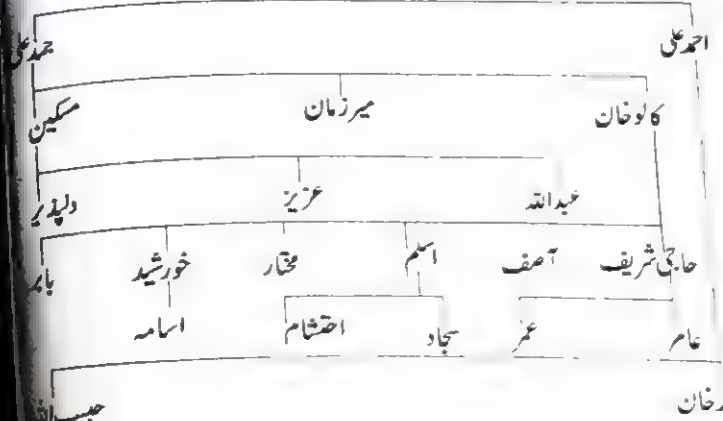 احمد علی
کالوخان میرزمان مسکین
عبداللہ عزیز دلپذیر
حاجی شریف آصف اسلم مختار خورشید بابر
عامر عمر سجاد احتشام اسامہ